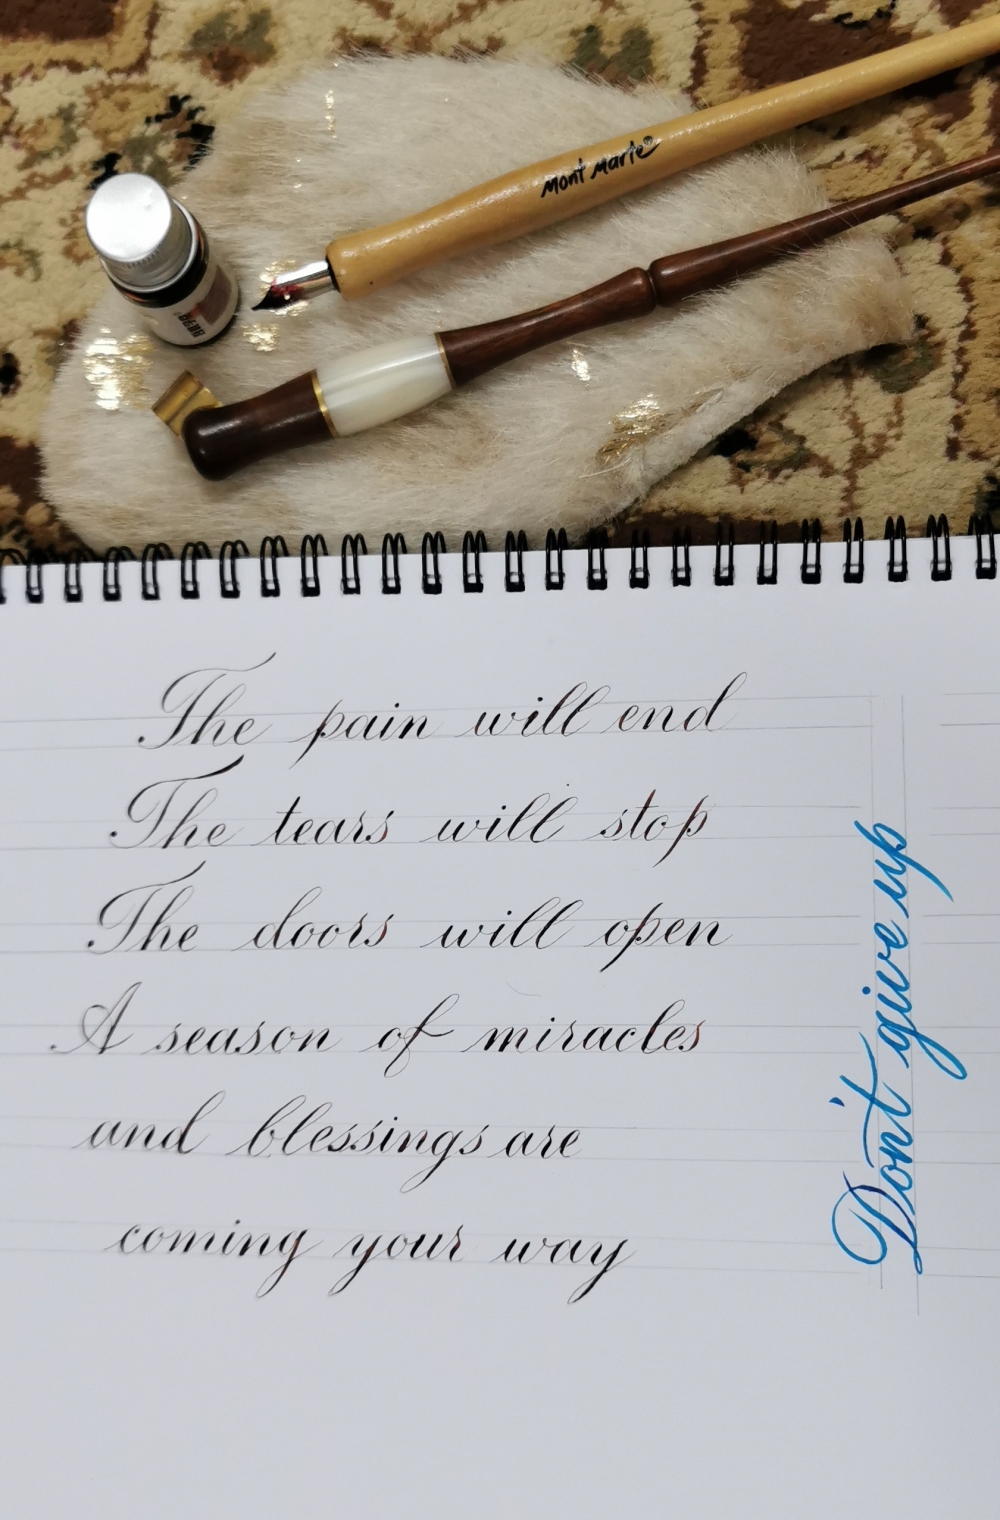 Mont Marte®
The pain will end
The tears will stop
The doors will open
A season of miracles
and blessings are
coming your way
Don't give up